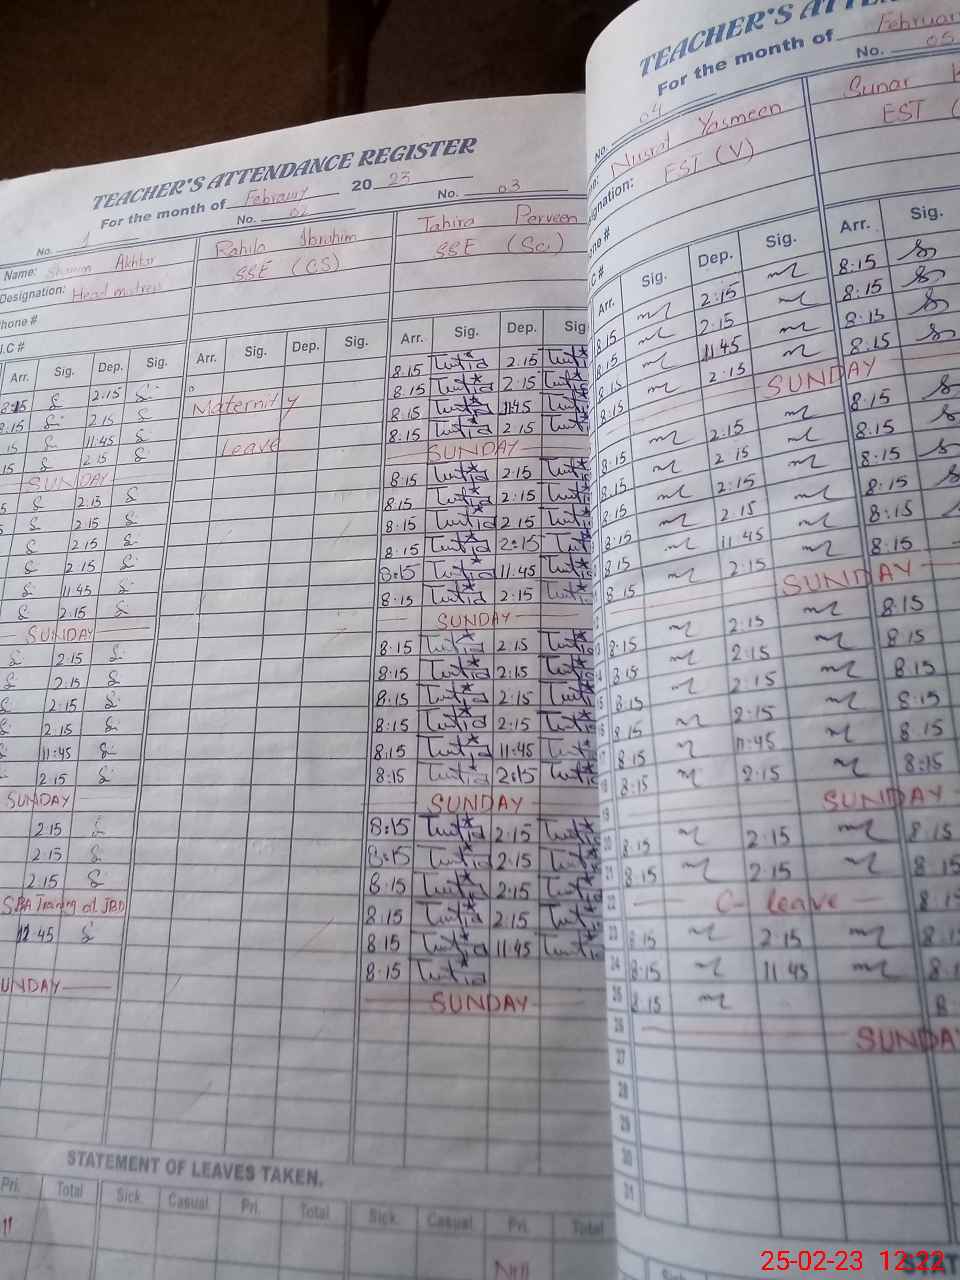 TEACHER'S ATTENDANCE REGISTER
For the month of February 2023
No. 1 No. 02 No. 03
Name: Shamim Akhtar Rahila Ibrahim Tahira Perveen
Designation: Head mistress SSE (CS) SSE (Sci)
hone #
.I.C #
Arr. Sig. Dep. Sig. Arr. Sig. Dep. Sig. Arr. Sig. Dep. Sig
8:15 2:15 8:15 2:15
8:15 2:15 Maternity 8:15 2:15
15 11:45 8:15 11:45
15 2:15 Leave 8:15 2:15
SUNDAY SUNDAY
2:15 8:15 2:15
2:15 8:15 2:15
2:15 8:15 2:15
2:15 8:15 2:15
11:45 8:15 11:45
2:15 8:15 2:15
SUNDAY SUNDAY
2:15 8:15 2:15
2:15 8:15 2:15
2:15 8:15 2:15
2:15 8:15 2:15
11:45 8:15 11:45
2:15 8:15 2:15
SUNDAY SUNDAY
2:15 8:15 2:15
2:15 8:15 2:15
2:15 8:15 2:15
Training at JBD 8:15 2:15
12:45 8:15 11:45
8:15
UNDAY SUNDAY
STATEMENT OF LEAVES TAKEN.
Pri. Total Sick Casual Pri. Total Sick Casual Pri. Total
Nill
TEACHER'S ATTEN
For the month of February
No. 04 No. 05
Nusrat Yasmeen Sunar
ignation: EST (V) EST (
one #
.C #
Arr. Sig. Dep. Sig. Arr. Sig.
8:15 2:15 8:15
8:15 2:15 8:15
8:15 11:45 8:15
8:15 2:15 8:15
SUNDAY
8:15 2:15 8:15
8:15 2:15 8:15
8:15 2:15 8:15
8:15 2:15 8:15
8:15 11:45 8:15
8:15 2:15 8:15
SUNDAY
8:15 2:15 8:15
8:15 2:15 8:15
8:15 2:15 8:15
16 8:15 2:15 8:15
17 8:15 11:45 8:15
18 8:15 2:15 8:15
19 SUNDAY
20 8:15 2:15 8:15
21 8:15 2:15 8:15
22 C- leave 8:15
23 8:15 2:15 8:1
24 8:15 11:45 8:1
25 8:15 8
26 SUNDA
27
28
29
30
31
STAT
25-02-23 12:22